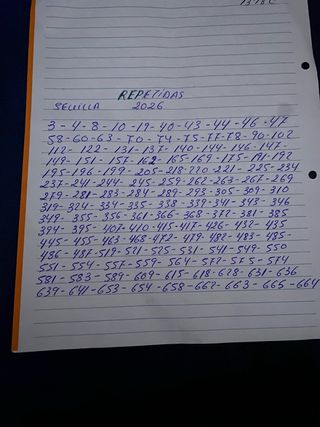 REPETIDAS
SEVILLA 2026
3-4-8-10-19-40-43-44-46-47
58-60-63-70-74-75-77-78-90-102
112-122-131-137-140-144-146-147-
149-151-157-162-165-169-175-191-192
195-196-199-205-218-220-221-225-234
237-241-244-245-259-262-263-267-269
279-281-283-284-289-293-305-309-310
319-324-334-335-338-339-341-343-346
349-355-356-361-366-368-372-381-385
394-395-407-410-415-417-426-432-435
445-455-463-468-472-479-482-483-485-
486-487-519-521-525-531-541-549-550
551-554-557-559-564-572-575-574
581-583-589-609-615-618-628-631-636
639-641-653-654-658-662-663-665-664